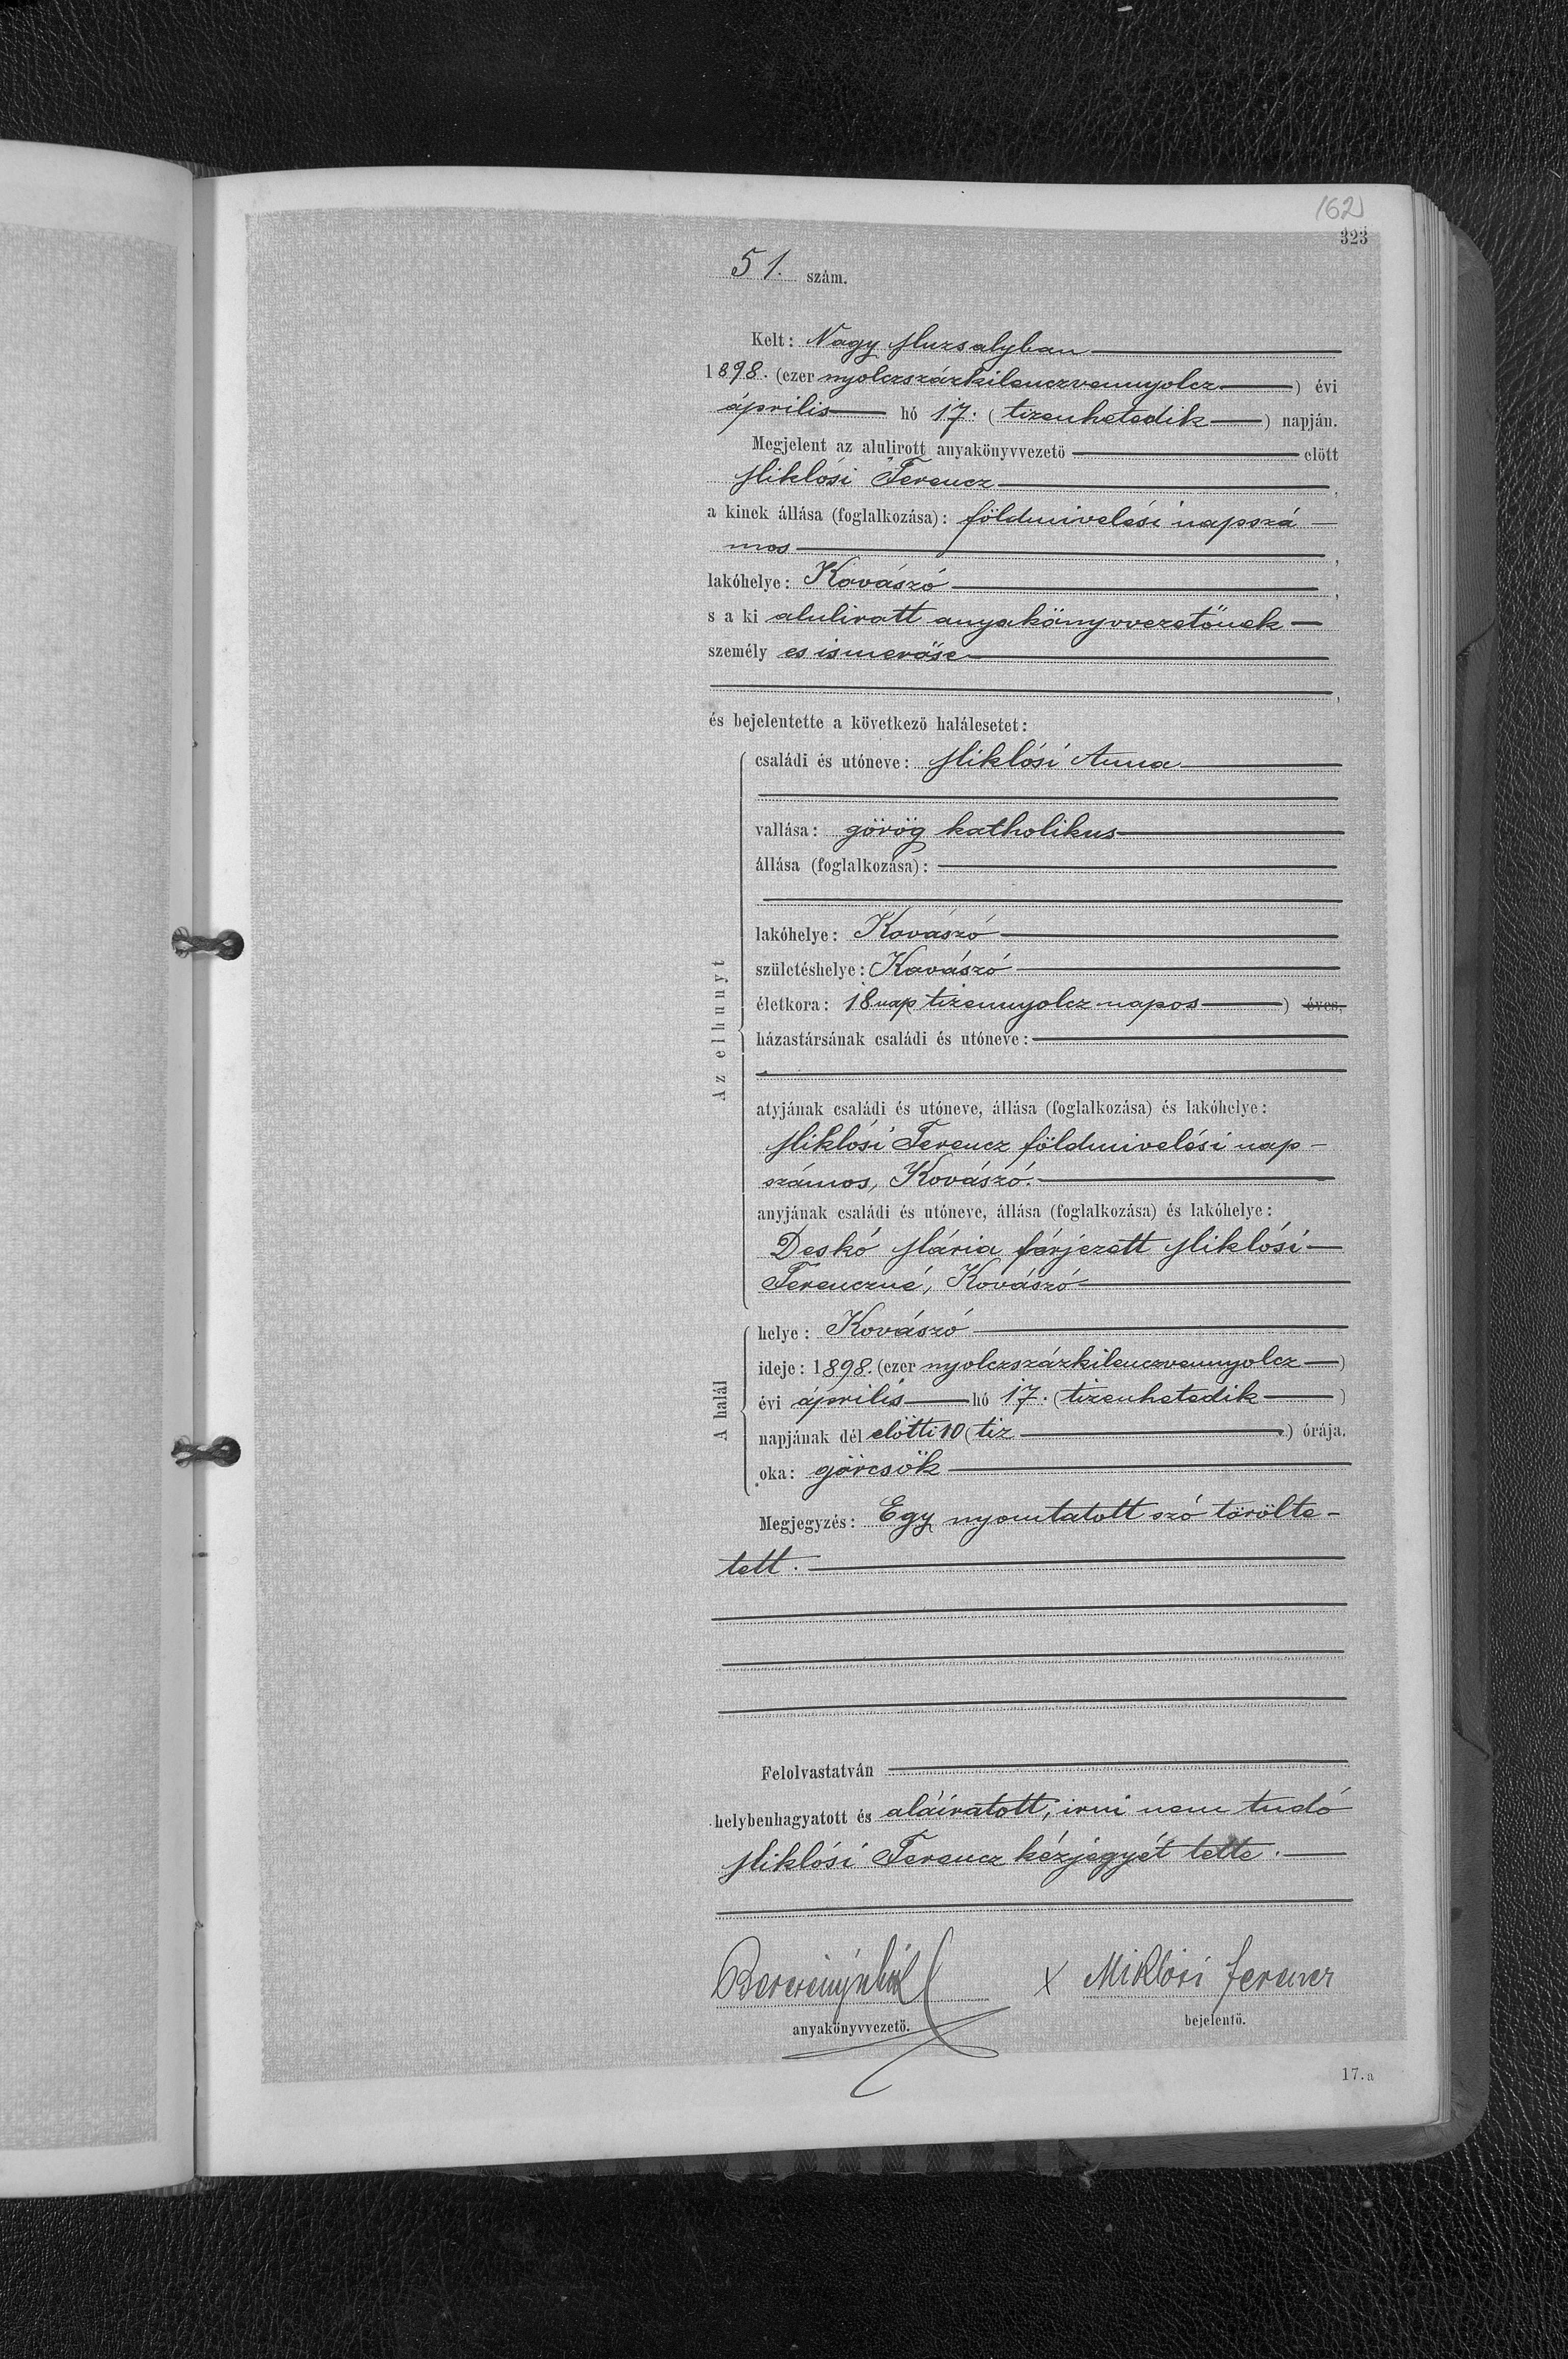 162
323
51. szám.
Kelt: Nagy Muzsalyban
1898. (ezer nyolczszázkilenczvennyolcz) évi
április hó 17. (tizenhetedik) napján.
Megjelent az alulirott anyakönyvvezető előtt
Miklósi Ferencz,
a kinek állása (foglalkozása): földmivelési napszá-
mos,
lakóhelye: Kovászó,
s a ki aluliratt anyakönyvvezetőnek
személyes ismerőse
,
és bejelentette a következő halálesetet:
Az elhunyt
családi és utóneve: Miklósi Anna
vallása: görög katholikus
állása (foglalkozása):
lakóhelye: Kovászó
születéshelye: Kovászó
életkora: 18 nap tizennyolcz napos) éves,
házastársának családi és utóneve:
atyjának családi és utóneve, állása (foglalkozása) és lakóhelye:
Miklósi Ferencz földmivelési nap-
számos, Kovászó.
anyjának családi és utóneve, állása (foglalkozása) és lakóhelye:
Deskó Mária férjezett Miklósi
Ferenczné, Kovászó
A halál
helye: Kovászó
ideje: 1898. (ezer nyolczszázkilenczvennyolcz)
évi április hó 17. (tizenhetedik)
napjának dél előtti 10 (tiz) órája.
oka: görcsök
Megjegyzés: Egy nyomtatott szó törölte-
tett.
Felolvastatván
helybenhagyatott és aláíratott, irni nem tudó
Miklósi Ferencz kézjegyét tette.
x Miklósi Ferencz
anyakönyvvezető. bejelentő.
17.a